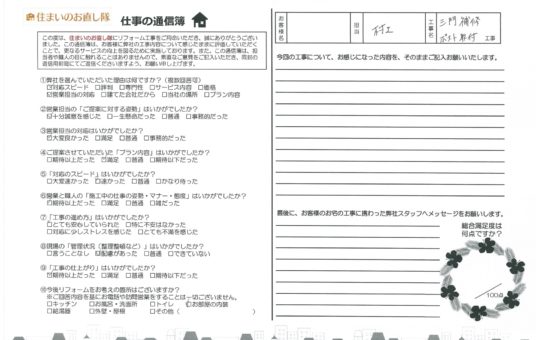 住まいのお直し隊 仕事の通信簿
この度は、住まいのお直し隊にリフォーム工事をご用命いただき、誠にありがとうございました。この通信簿は、お客様に弊社の工事内容について感じたままに評価していただくことで、更なるサービスの向上を図るために実施しております。また、この通信簿は、担当者や職人の目に触れることはありませんので、率直なご意見をご記入いただき、同封の返信用封筒にてご返信くださいますよう、お願い申し上げます。
①弊社を選んでいただいた理由は何ですか？（複数回答可）
☑対応スピード □評判 □専門性 □サービス内容 □価格
☑営業担当の対応 □建てた会社だから □当社の場所 □プラン内容
②営業担当の「ご提案に対する姿勢」はいかがでしたか？
☑十分誠意を感じた □一生懸命だった □普通 □事務的だった
③営業担当の対応はいかがでしたか？
☑大変良かった □満足 □普通 □事務的だった
④ご提案させていただいた「プラン内容」はいかがでしたか？
□期待以上だった ☑満足 □普通 □期待以下だった
⑤「対応のスピード」はいかがでしたか？
□大変速かった ☑速かった □普通 □かなり待った
⑥営業と職人の「施工中の仕事の姿勢・マナー・態度」はいかがでしたか？
☑期待以上だった □満足 □普通 □雑だった
⑦「工事の進め方」はいかがでしたか？
□とても安心していられた □特に不安はなかった
☑対応に少しストレスを感じた □とても不満を感じた
⑧現場の「管理状況（整理整頓など）」はいかがでしたか？
□言うことなし ☑配慮があった □普通 □できていない
⑨「工事の仕上がり」はいかがでしたか？
☑期待以上だった □満足 □普通 □期待以下だった
⑩今後リフォームをお考えの箇所はございますか？
※ご回答内容を基にお電話や訪問営業をすることは一切ございません。
□キッチン □お風呂・洗面所 □トイレ □お部屋の内装
□給湯器 □外壁・屋根 □その他（ ）
お客様名
担当
村上
工事名
ポスト取付 工事
今回の工事について、お感じになった内容を、そのままご記入お願いいたします。
最後に、お客様のお宅の工事に携わった弊社スタッフへメッセージをお願いします。
総合満足度は
何点ですか？
/100点